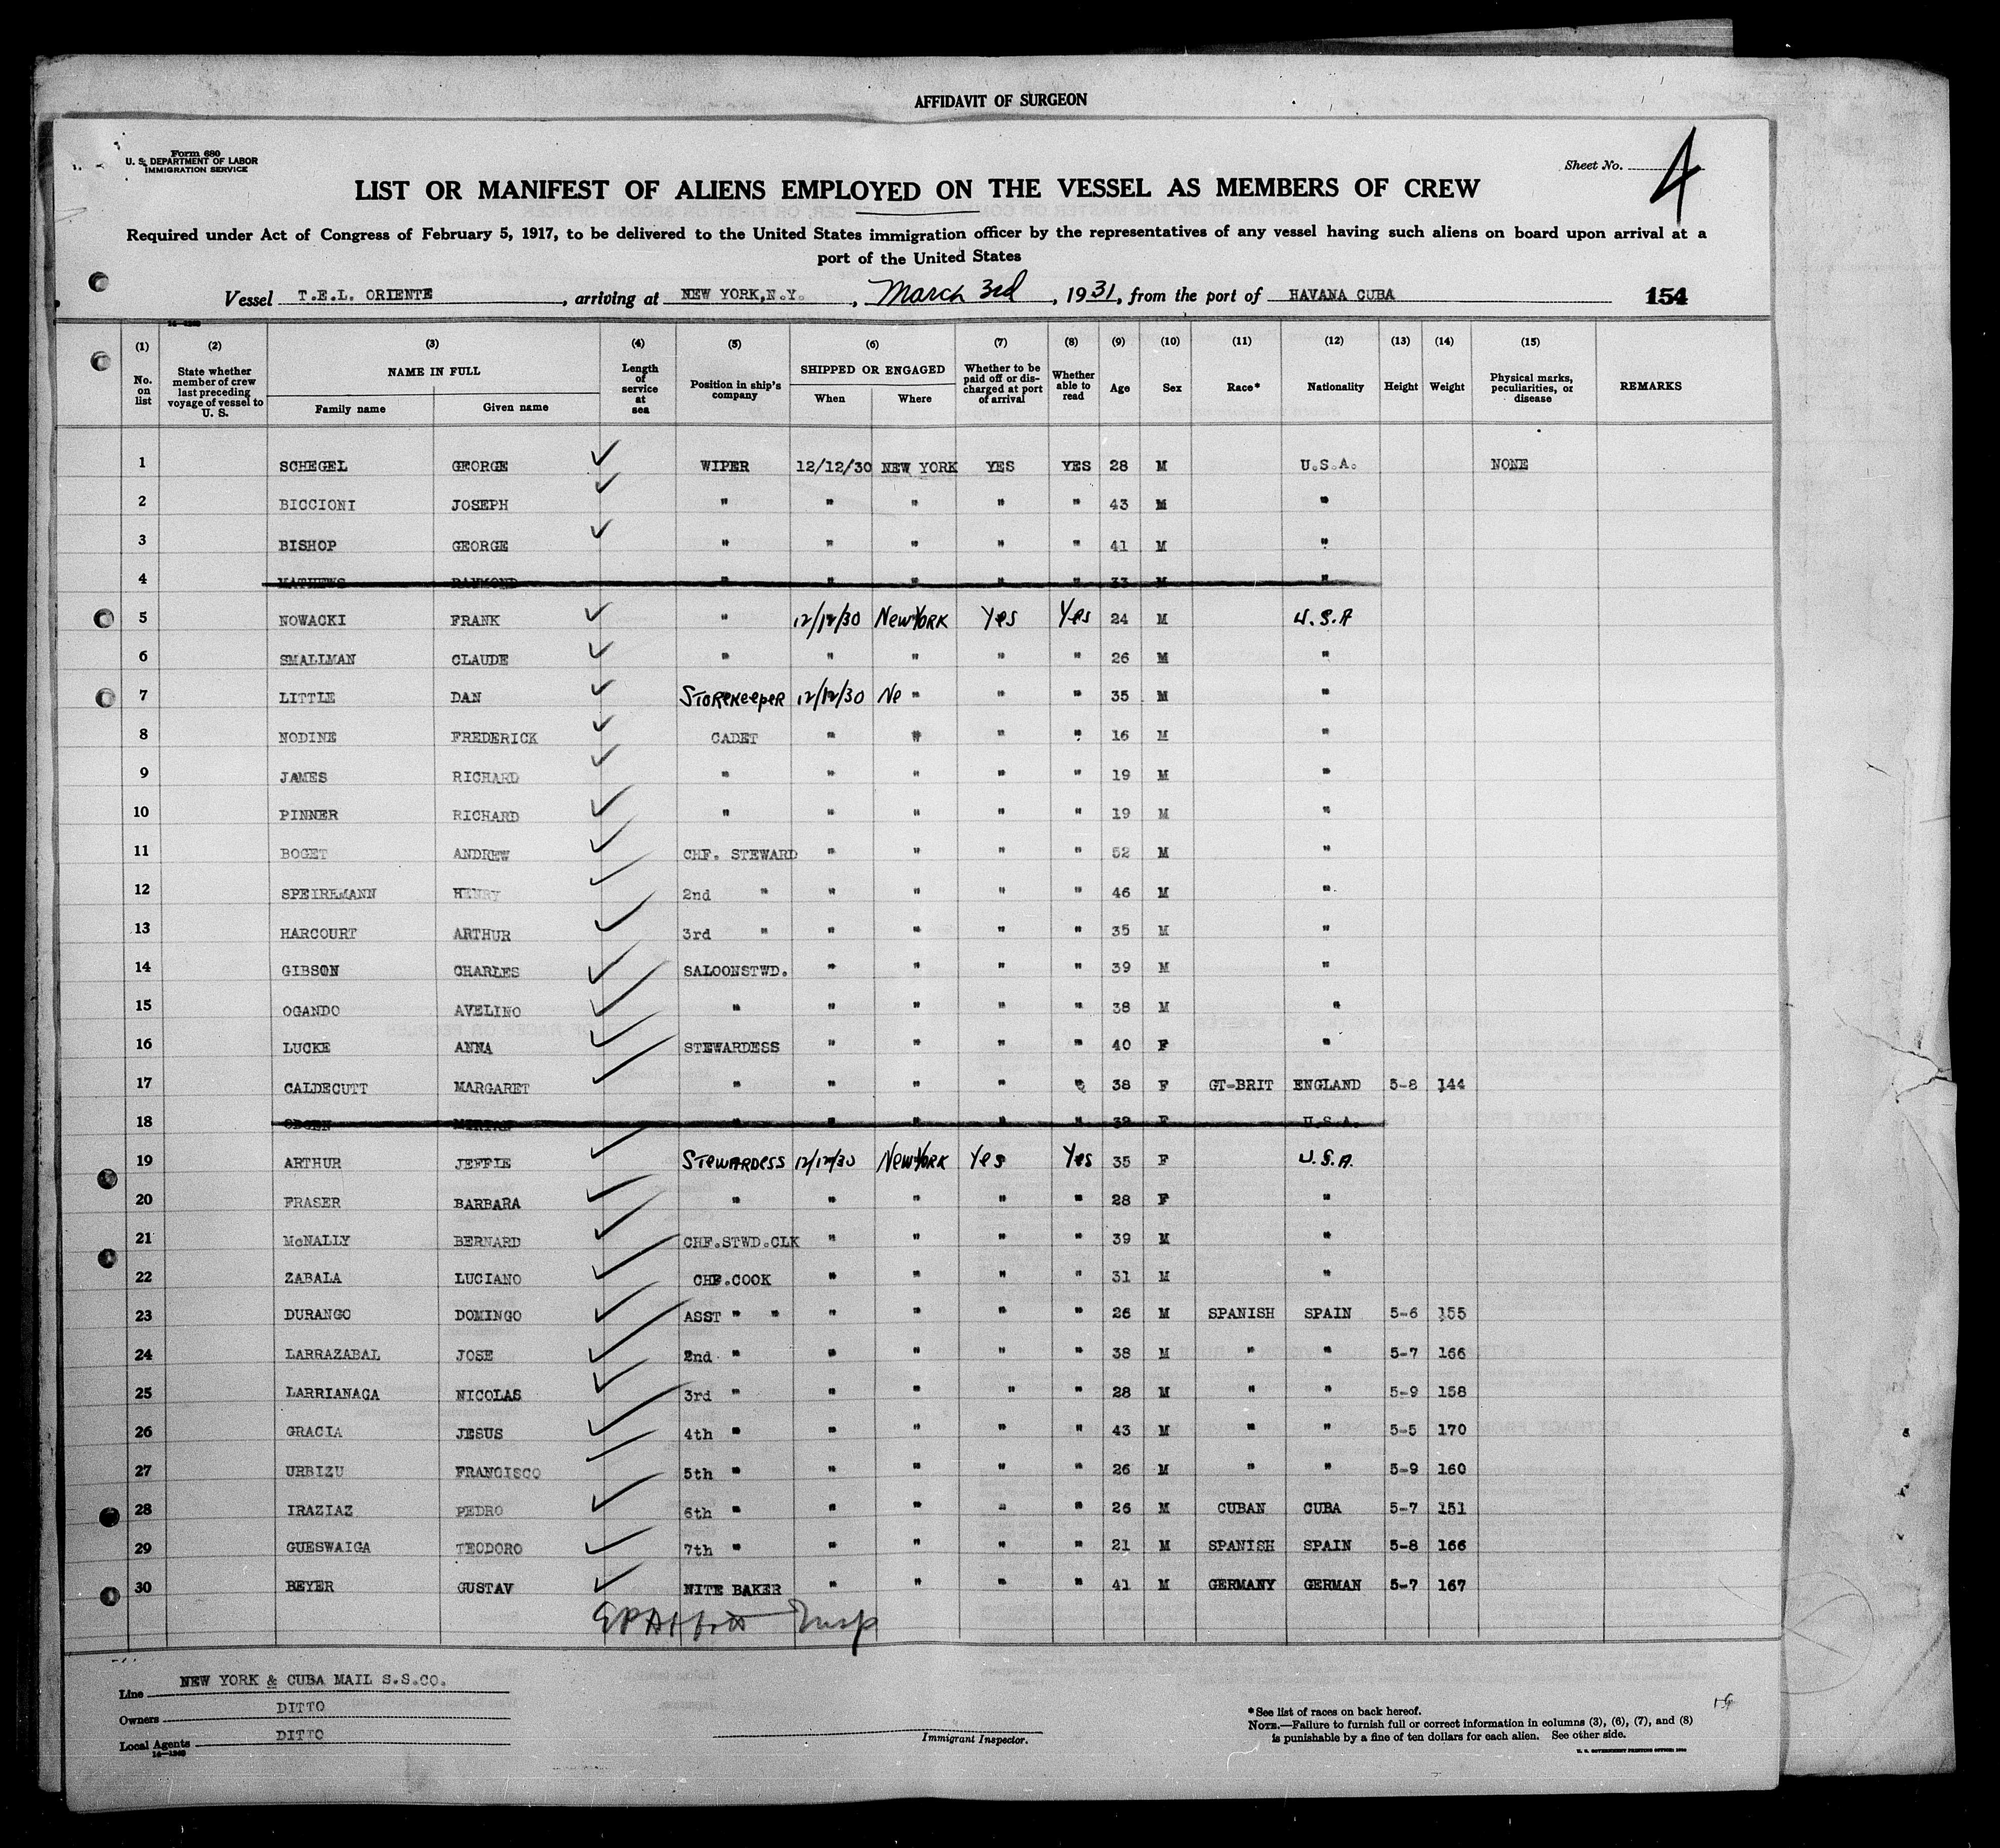 AFFIDAVIT OF SURGEON
Form 680
U. S. DEPARTMENT OF LABOR
IMMIGRATION SERVICE
Sheet No. 4
LIST OR MANIFEST OF ALIENS EMPLOYED ON THE VESSEL AS MEMBERS OF CREW
Required under Act of Congress of February 5, 1917, to be delivered to the United States immigration officer by the representatives of any vessel having such aliens on board upon arrival at a
port of the United States
Vessel T.E.L. ORIENTE, arriving at NEW YORK,N.Y., March 3rd, 1931, from the port of HAVANA CUBA 154
14—1240
(1) (2) (3) (4) (5) (6) (7) (8) (9) (10) (11) (12) (13) (14) (15)
No. on list State whether member of crew last preceding voyage of vessel to U. S. NAME IN FULL Family name Given name Length of service at sea Position in ship's company SHIPPED OR ENGAGED When Where Whether to be paid off or discharged at port of arrival Whether able to read Age Sex Race* Nationality Height Weight Physical marks, peculiarities, or disease REMARKS
1 SCHEGEL GEORGE ✓ WIPER 12/12/30 NEW YORK YES YES 28 M U.S.A. NONE
2 BICCIONI JOSEPH ✓ " " " " " 43 M "
3 BISHOP GEORGE ✓ " " " " " 41 M "
4 MATHEWS RAYMOND " " " " " 33 M "
5 NOWACKI FRANK ✓ " 12/12/30 New York Yes Yes 24 M U.S.A
6 SMALLMAN CLAUDE ✓ " " " " " 26 M "
7 LITTLE DAN ✓ Storekeeper 12/12/30 Ne " " " 35 M "
8 NODINE FREDERICK ✓ CADET " " " " 16 M "
9 JAMES RICHARD ✓ " " " " " 19 M "
10 PINNER RICHARD ✓ " " " " " 19 M "
11 BOGET ANDREW ✓ CHF. STEWARD " " " " 52 M "
12 SPEIRHMANN HENRY ✓ 2nd " " " " " 46 M "
13 HARCOURT ARTHUR ✓ 3rd " " " " " 35 M "
14 GIBSON CHARLES ✓ SALOONSTWD. " " " " 39 M "
15 OGANDO AVELINO ✓ " " " " " 38 M "
16 LUCKE ANNA ✓ STEWARDESS " " " " 40 F "
17 CALDECUTT MARGARET ✓ " " " " " 38 F GT-BRIT ENGLAND 5-8 144
18 " " " " " F U.S.A.
19 ARTHUR JEFFIE ✓ Stewardess 12/12/30 New York Yes Yes 35 F U.S.A.
20 FRASER BARBARA ✓ " " " " " 28 F "
21 McNALLY BERNARD ✓ CHF.STWD.CLK " " " " 39 M "
22 ZABALA LUCIANO ✓ CHF.COOK " " " " 31 M "
23 DURANGO DOMINGO ✓ ASST " " " " " " 26 M SPANISH SPAIN 5-6 155
24 LARRAZABAL JOSE ✓ 2nd " " " " " 38 M " " 5-7 166
25 LARRIANAGA NICOLAS ✓ 3rd " " " " " 28 M " " 5-9 158
26 GRACIA JESUS ✓ 4th " " " " " 43 M " " 5-5 170
27 URBIZU FRANCISCO ✓ 5th " " " " " 26 M " " 5-9 160
28 IRAZIAZ PEDRO ✓ 6th " " " " " 26 M CUBAN CUBA 5-7 151
29 GUESWAIGA TEODORO ✓ 7th " " " " " 21 M SPANISH SPAIN 5-8 166
30 BEYER GUSTAV ✓ NITE BAKER " " " " 41 M GERMANY GERMAN 5-7 167
Insp
Line NEW YORK & CUBA MAIL S.S.CO.
Owners DITTO
Local Agents DITTO
14—1240
Immigrant Inspector.
*See list of races on back hereof.
NOTE.—Failure to furnish full or correct information in columns (3), (6), (7), and (8)
is punishable by a fine of ten dollars for each alien. See other side.